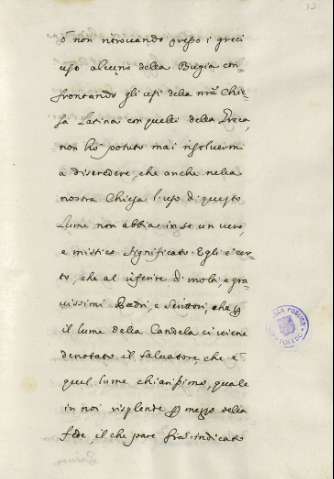 ò non ritrovando presso i greci
uso alcuno della Bugia con=
frontando gli usi della nrã Chie
sa Latina con quelli della Greca
non hò potuto mai risolvermi
a discredere, che anche nella
nostra Chiesa l'uso di questo
Lume non abbia in se un vero,
e mistico significato. Egli è cer=
to, che al riferire di molti, e gra
vissimi Padri, e Scrittori, che p
il lume della Candela ci viene
denotato il Salvatore, che è
quel lume chiarissimo, quale
in noi risplende p mezzo della
fede, il che pare fras indicato